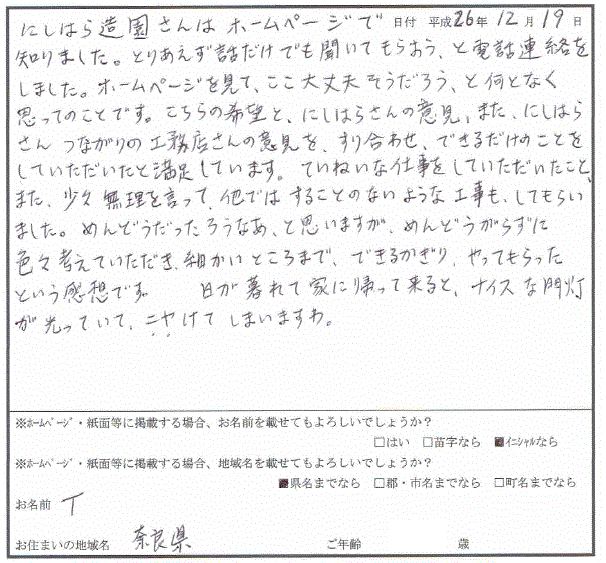 にしはら造園さんは ホームページで 日付 平成26年12月19日
知りました。とりあえず話だけでも聞いてもらおう、と電話連絡を
しました。ホームページを見て、ここ大丈夫そうだろう、と何となく
思ってのことです。こちらの希望と、にしはらさんの意見、また、にしはら
さん つながりの工務店さんの意見を、すり合わせ、できるだけのことを
していただいたと満足しています。ていねいな仕事をしていただいたこと、
また、少々無理を言って、他では することのないような工事も、してもらい
ました。めんどうだったろうなあ、と思いますが、めんどうがらずに
色々考えていただき、細かいところまで、できるかぎり やってもらった
という感想です。 日が暮れて家に帰って来ると、ナイスな門灯
が光っていて、ニヤけて しまいますわ。
※ﾎｰﾑﾍﾟｰｼﾞ・紙面等に掲載する場合、お名前を載せてもよろしいでしょうか？
□はい □苗字なら ■ｲﾆｼｬﾙなら
※ﾎｰﾑﾍﾟｰｼﾞ・紙面等に掲載する場合、地域名を載せてもよろしいでしょうか？
■県名までなら □郡・市名までなら □町名までなら
お名前 T
お住まいの地域名 奈良県 ご年齢 歳